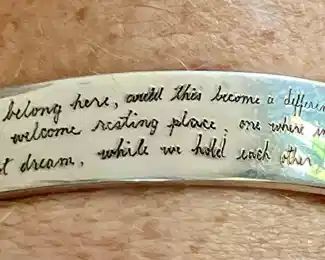 belong here, could this become a differen
welcome resting place, one where w
t dream, while we hold each other